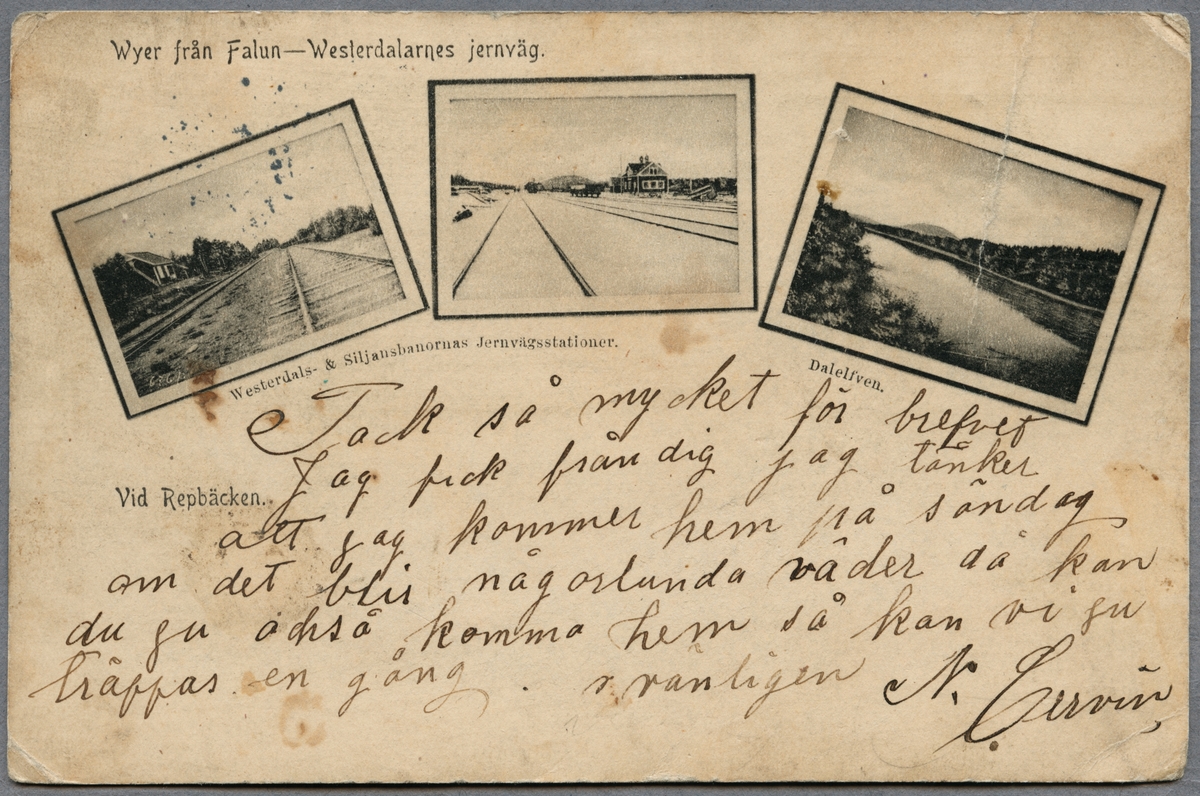 Wyer från Falun—Westerdalarnes jernväg.
Westerdals- & Siljansbanornas Jernvägsstationer.
Dalelfven.
Vid Repbäcken.
Tack så mycket för brefvet
Jag fick från dig jag tänker
att jag kommer hem på söndag
om det blir någorlunda väder då kan
du gu också komma hem så kan vi gu
träppas en gång . vänligen N. Cervin